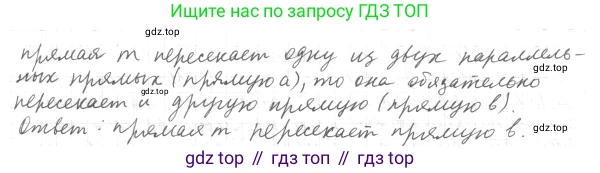 Ищите нас по запросу ГДЗ ТОП
прямая m пересекает одну из двух параллель-
ных прямых (прямую a), то она обязательно
пересекает и другую прямую (прямую b).
Ответ: прямая m пересекает прямую b.
gdz.top // гдз топ // gdz top